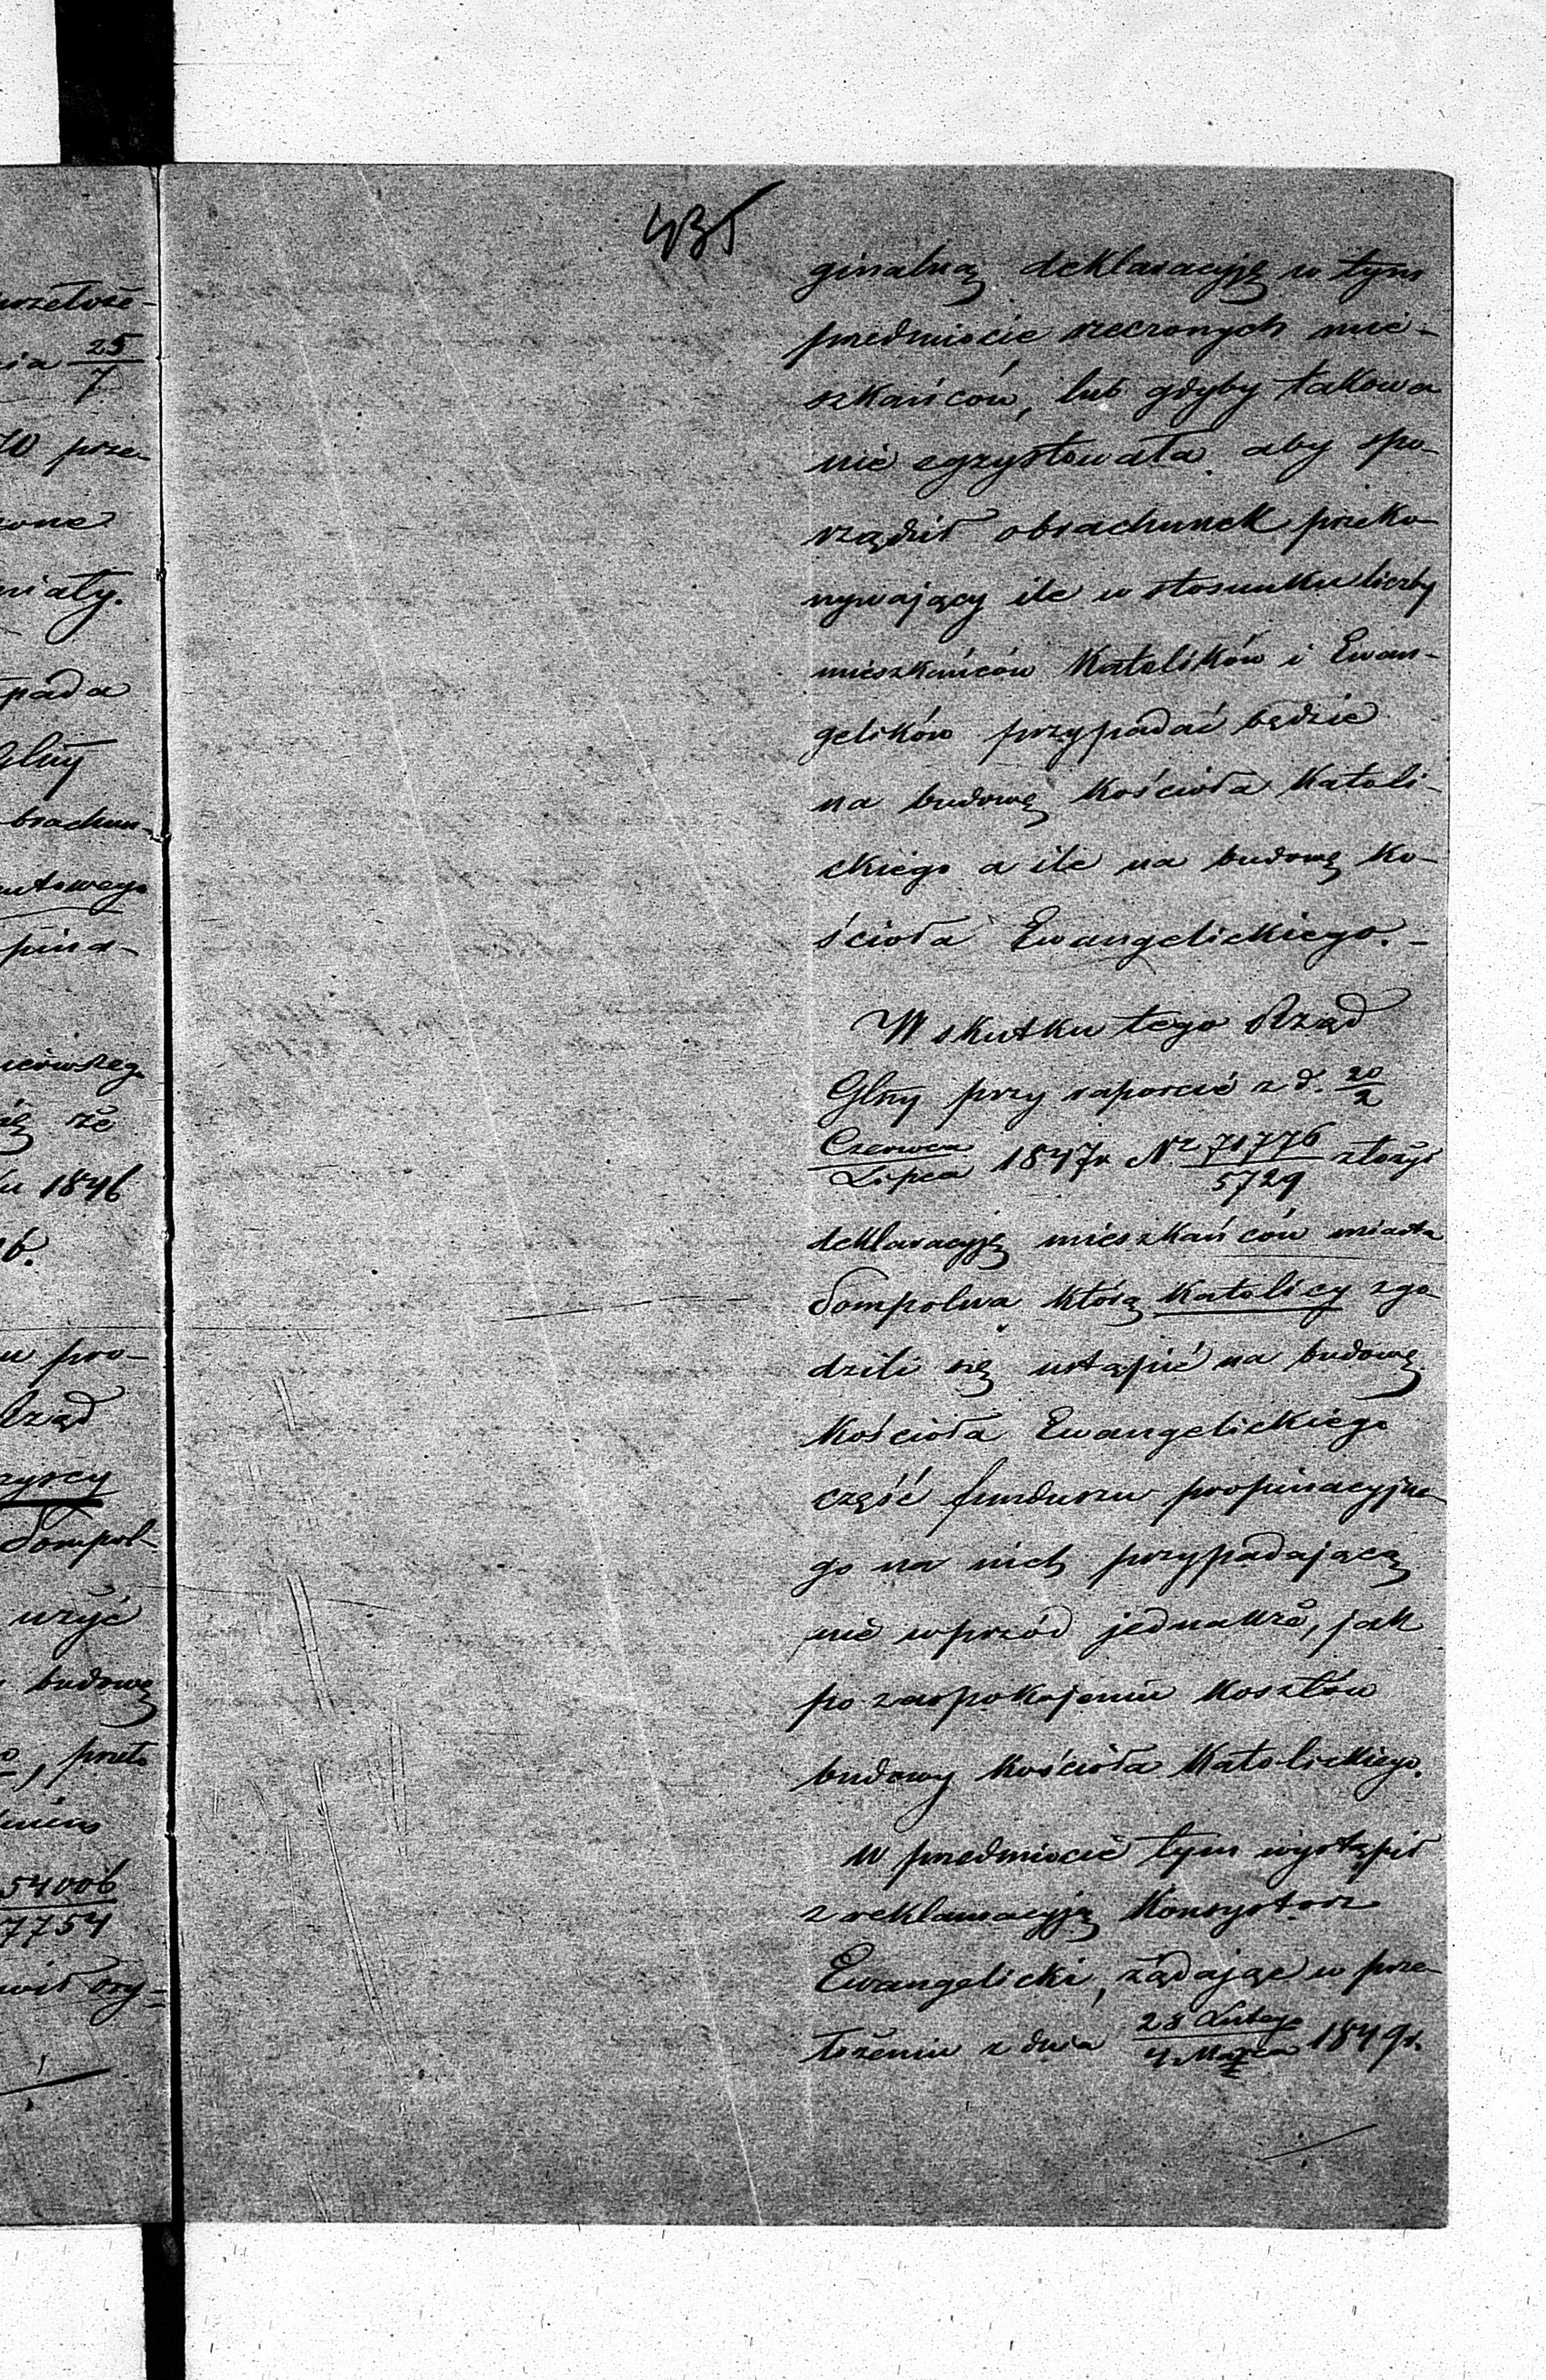 rzełoże-
nia 25/7
70 prze-
zone
miały.
pada
Glny
brachun-
utowego
pina-
ierwszego
ię że
ku 1846
6.
u pro-
Rząd
zyscy
Sompol-
użyć
budowę
o, przeto
54006/7754
wił ory-
435
ginalną deklaracyję w tym
przedmiocie rzeczonych mie-
szkańców, lub gdyby takowa
nie egzystowała, aby spo-
rządził obrachunek przeko-
nywający ile w stosunku liczby
mieszkańców Katolików i Ewan-
gelików przypadać będzie
na budowę Kościoła Katoli-
ckiego a ile na budowę Ko-
ścioła Ewangelickiego. -
W skutku tego Rząd
Glny przy raporcie z d. 20/2
Czerwca/Lipca 1847 r. Nr 71776/5729 złożył
deklaracyję mieszkańców miasta
Sompolna którą Katolicy zgo-
dzili się ustąpić na budowę
Kościoła Ewangelickiego
część funduszu propinacyjne-
go na nich przypadającą
nie wprzód jednakże, jak
po zaspokojeniu kosztów
budowy Kościoła Katolickiego.
W przedmiocie tym wystąpił
z reklamacyją Konsystorz
Ewangelicki, żądając w prze-
łożeniu z dnia 28 Lutego/4 Marca 1849 r.